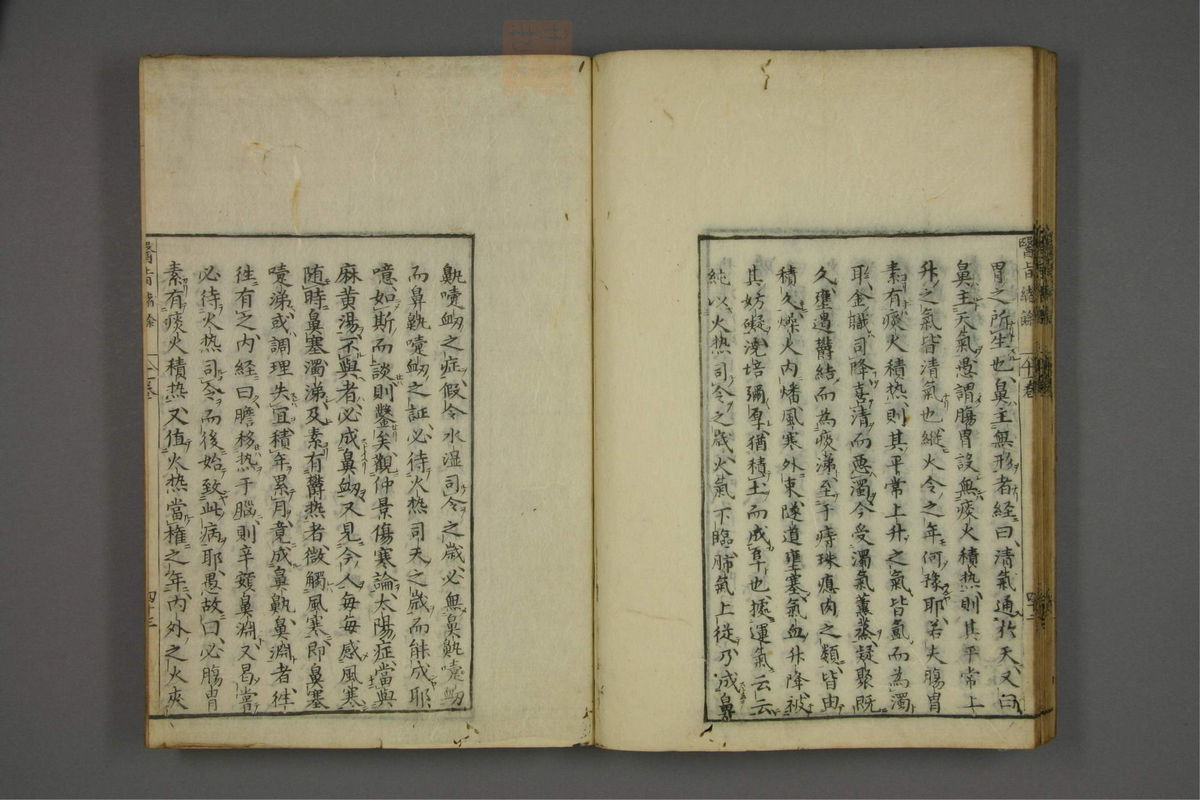 醫旨緒餘
胃之所生也鼻主無形者經曰清氣通於天又曰
鼻主天氣愚謂腸胃設無痰火積热則其平常上
升之氣皆清氣也縱火令之年何豫耶若夫腸胃
素有痰火積热則其平常上升之氣皆氤而為濁
耶金職司降喜清而惡濁今受濁氣薰蒸凝聚既
久壅遏欝結而為痰涕至于痔珠瘜肉之類皆由
積久燥火内燔風寒外束隧道壅塞氣血升降被
其妨礙澆培彌厚猶積土而成阜也據運氣云云
純以火热司令之歳火氣下臨肺氣上従乃成鼻
鼽嚏衂之症假令水湿司令之歳必無鼻鼽嚏衂
而鼻鼽嚏衂之証必待火热司天之歳而能成耶
噫如斯而談則鑿矣觀仲景傷寒論太陽症當與
麻黄湯不與者必成鼻衂又見今人每每感風寒
随時鼻塞濁涕及素有欝热者微觸風寒即鼻塞
嚏涕或調理失宜積年累月竟成鼻鼽鼻淵者徃
徃有之内経曰膽移热于腦則辛頞鼻淵又曷嘗
必待火热司令而後始致此病耶愚故曰必腸胃
素有痰火積热又值火热當權之年内外之火夾
醫旨緒餘
四十三